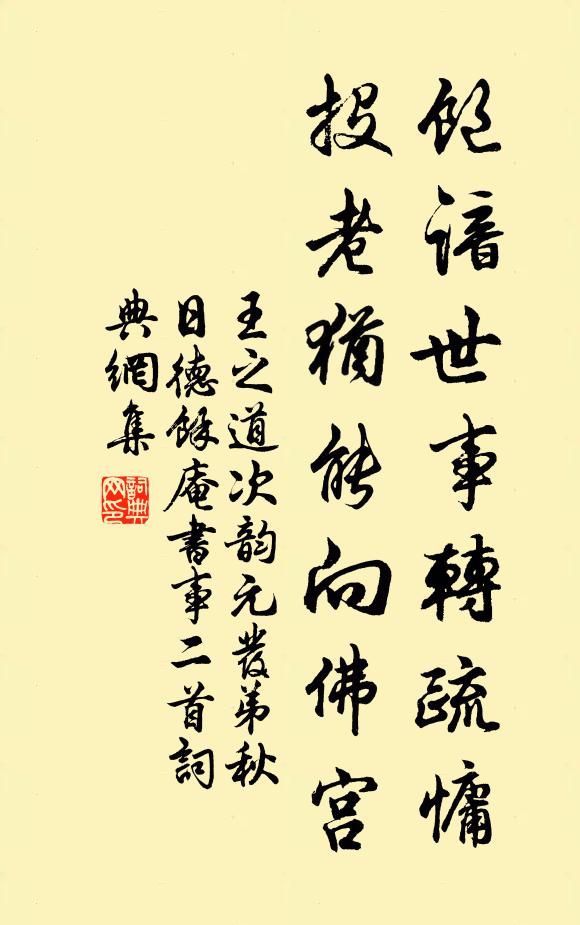 飽諳世事轉疏慵
投老猶能向佛宮
王之道次韵元發弟秋
日德餘庵書事二首詞
典網集
詞典網印